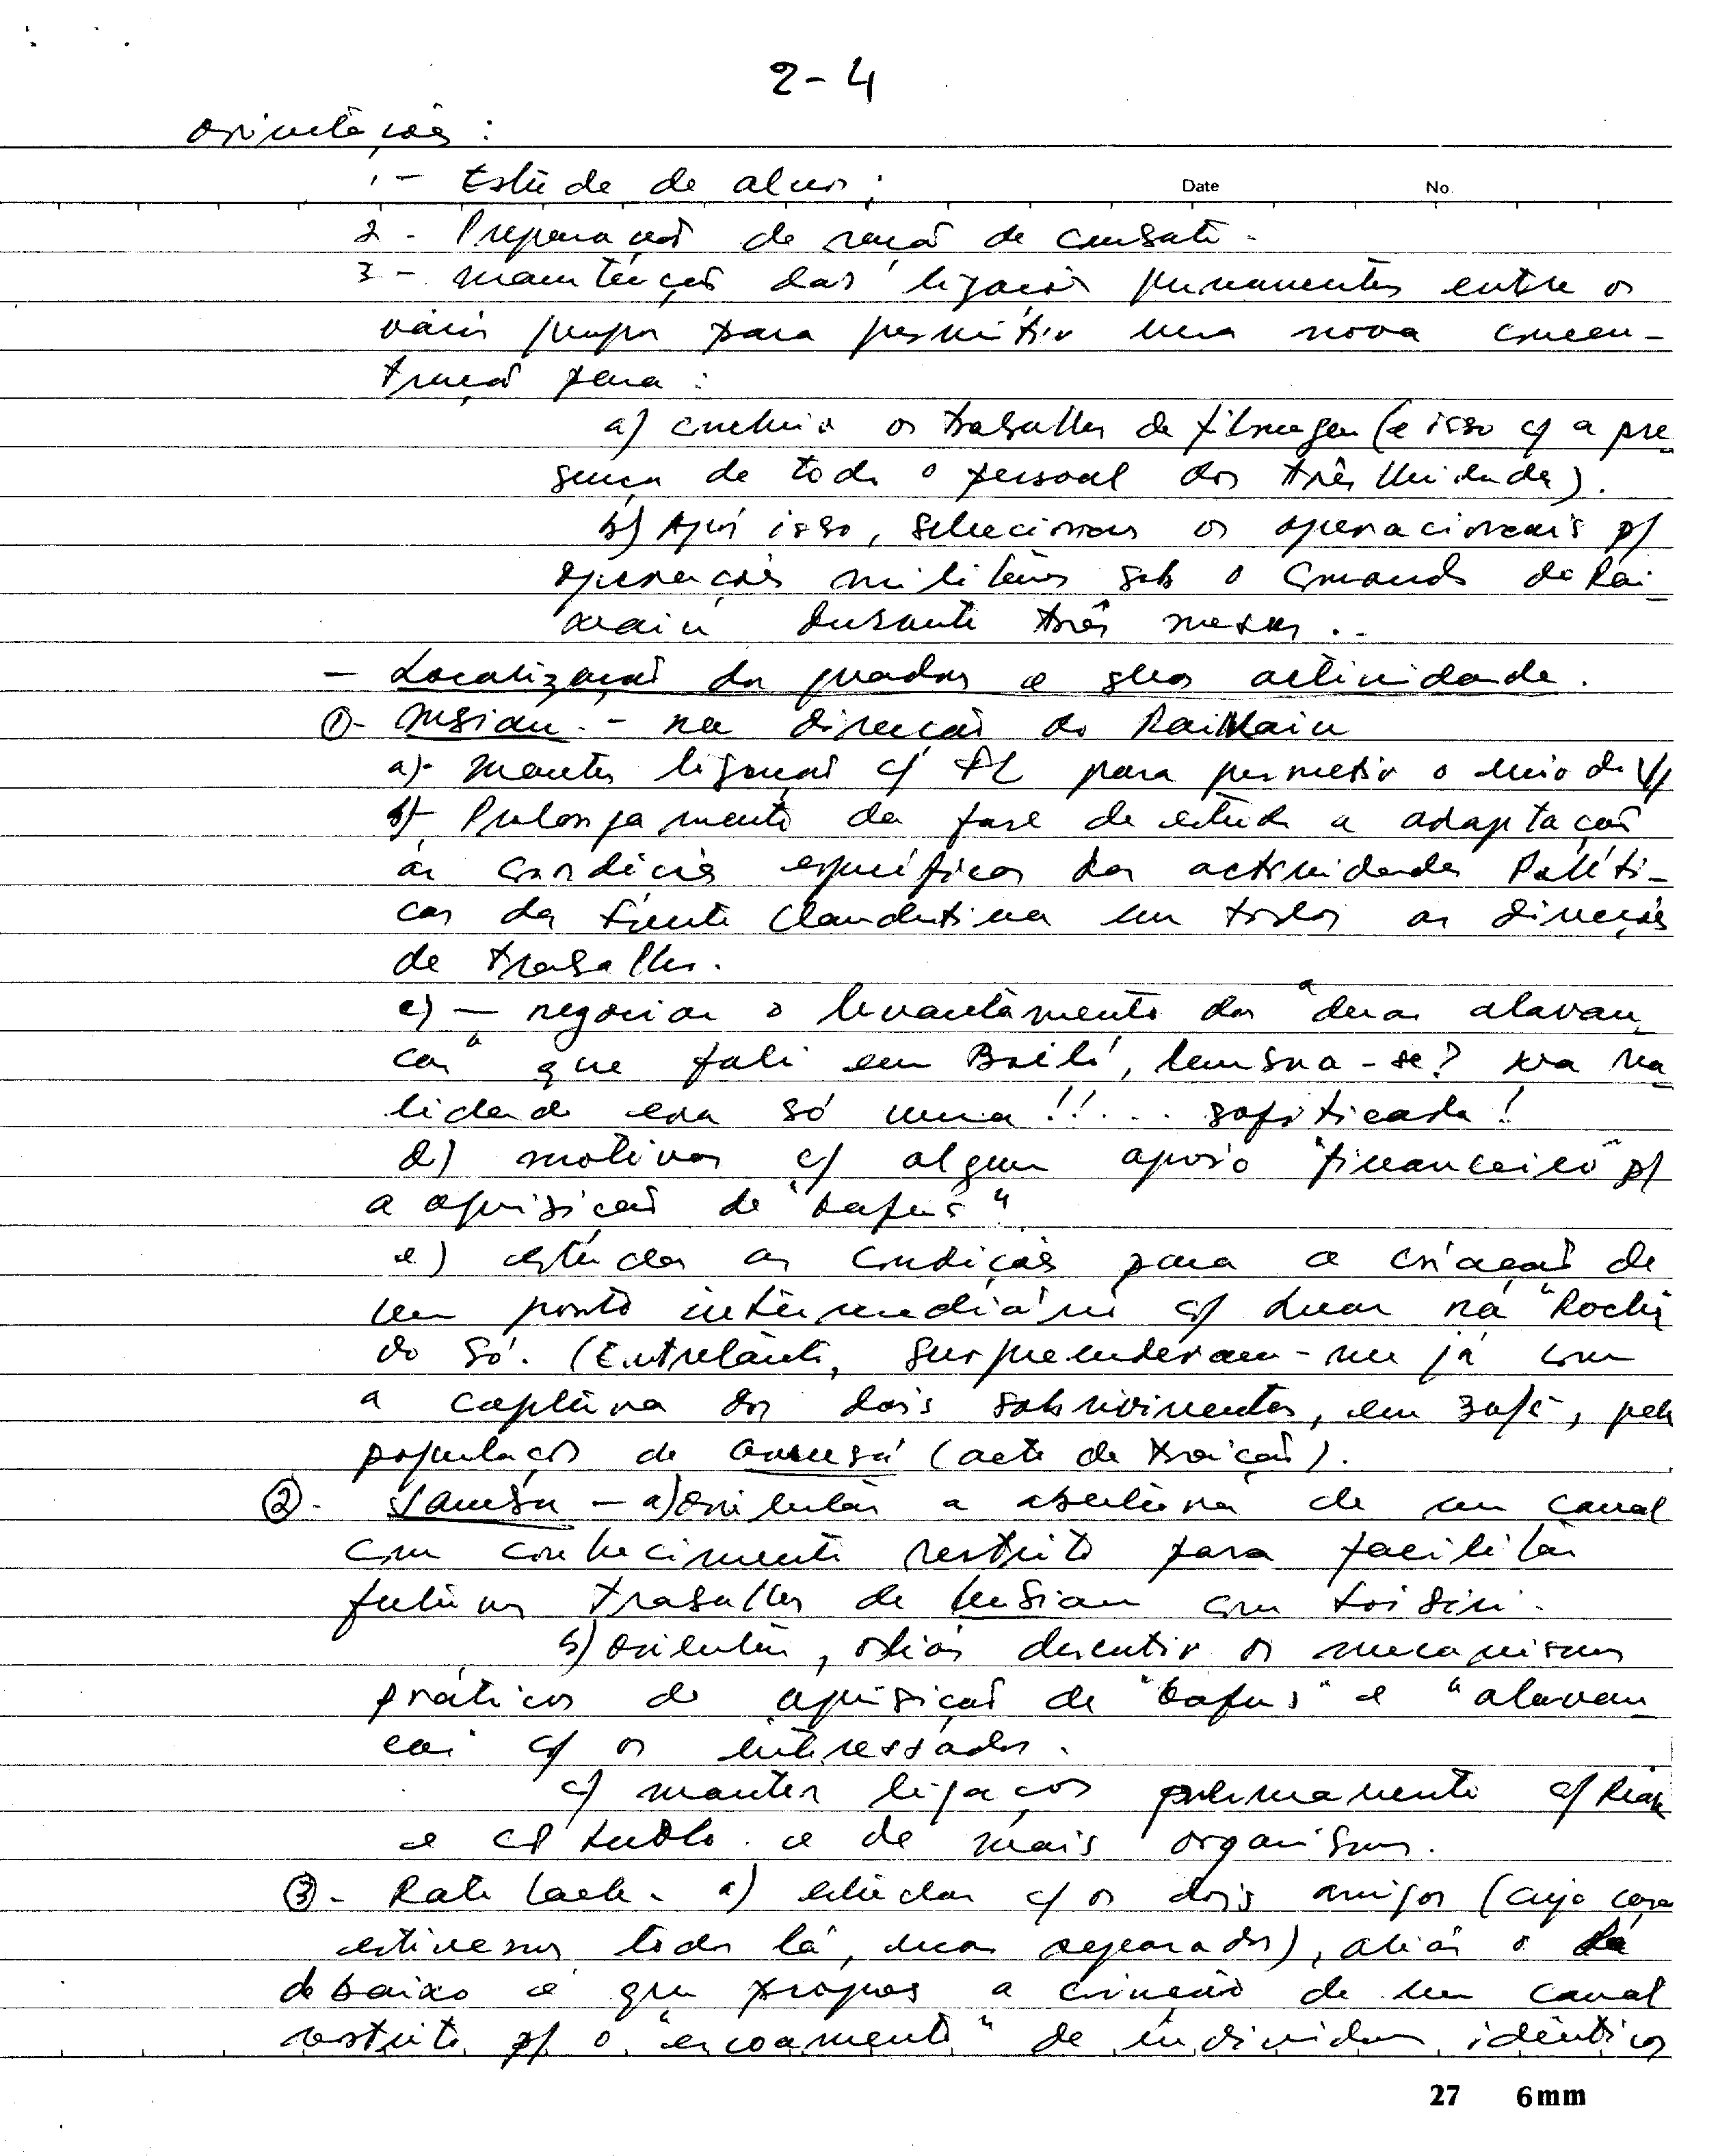 2-4
orientações :
1 - Estudo de alvos ;
Date No.
2 - Preparação de ração de combate.
3 - manutenção das ligações permanentes entre os
vários grupos para permitir uma nova concen-
tração para :
a) concluir os trabalhos de filmagem (e isso c/ a pre
sença de todo o pessoal das três Unidades).
b) Após isso, seleccionar os operacionais p/
operações militares sob o comando de Rai
durante três meses ..
- Localização dos quadros e suas actividade.
①- - na direcção do
a)- manter ligação c/ FL para permitir o
b)- Prolongamento da fase de estudo e adaptação
às condições específicas das actividades Políti-
cas da Frente Clandestina em todas as direcções
de trabalho.
c) - negociar o levantamento das "duas alavan
cas" que falei em , lembra-se? na rea
lidade era só uma !! ... sofisticada !
d) motivar c/ algum apoio "financeiro" p/
a aquisição de "
e) estudar as condições para a criação de
um ponto intermediário c/
do só. (Entretanto, surpreenderam-me já com
a captura dos dois sobreviventes, em , pela
população de (acto de traição).
②- - a) orientar a abertura de um canal
com conhecimento restrito para facilitar
futuros trabalhos de com
b) orientar, aliás discutir os mecanismos
práticos de aquisição de " e "alavan
cas c/ os interessados.
c) manter ligações permanente c/
e e de mais organismos.
③- a) estudar c/ os dois amigos (cuja casa
estivemos todos lá, mas separados), aliás o de
debaixo é que propôs a criação de um canal
restrito p/ o "escoamento" de indivíduos idênticos
27 6mm